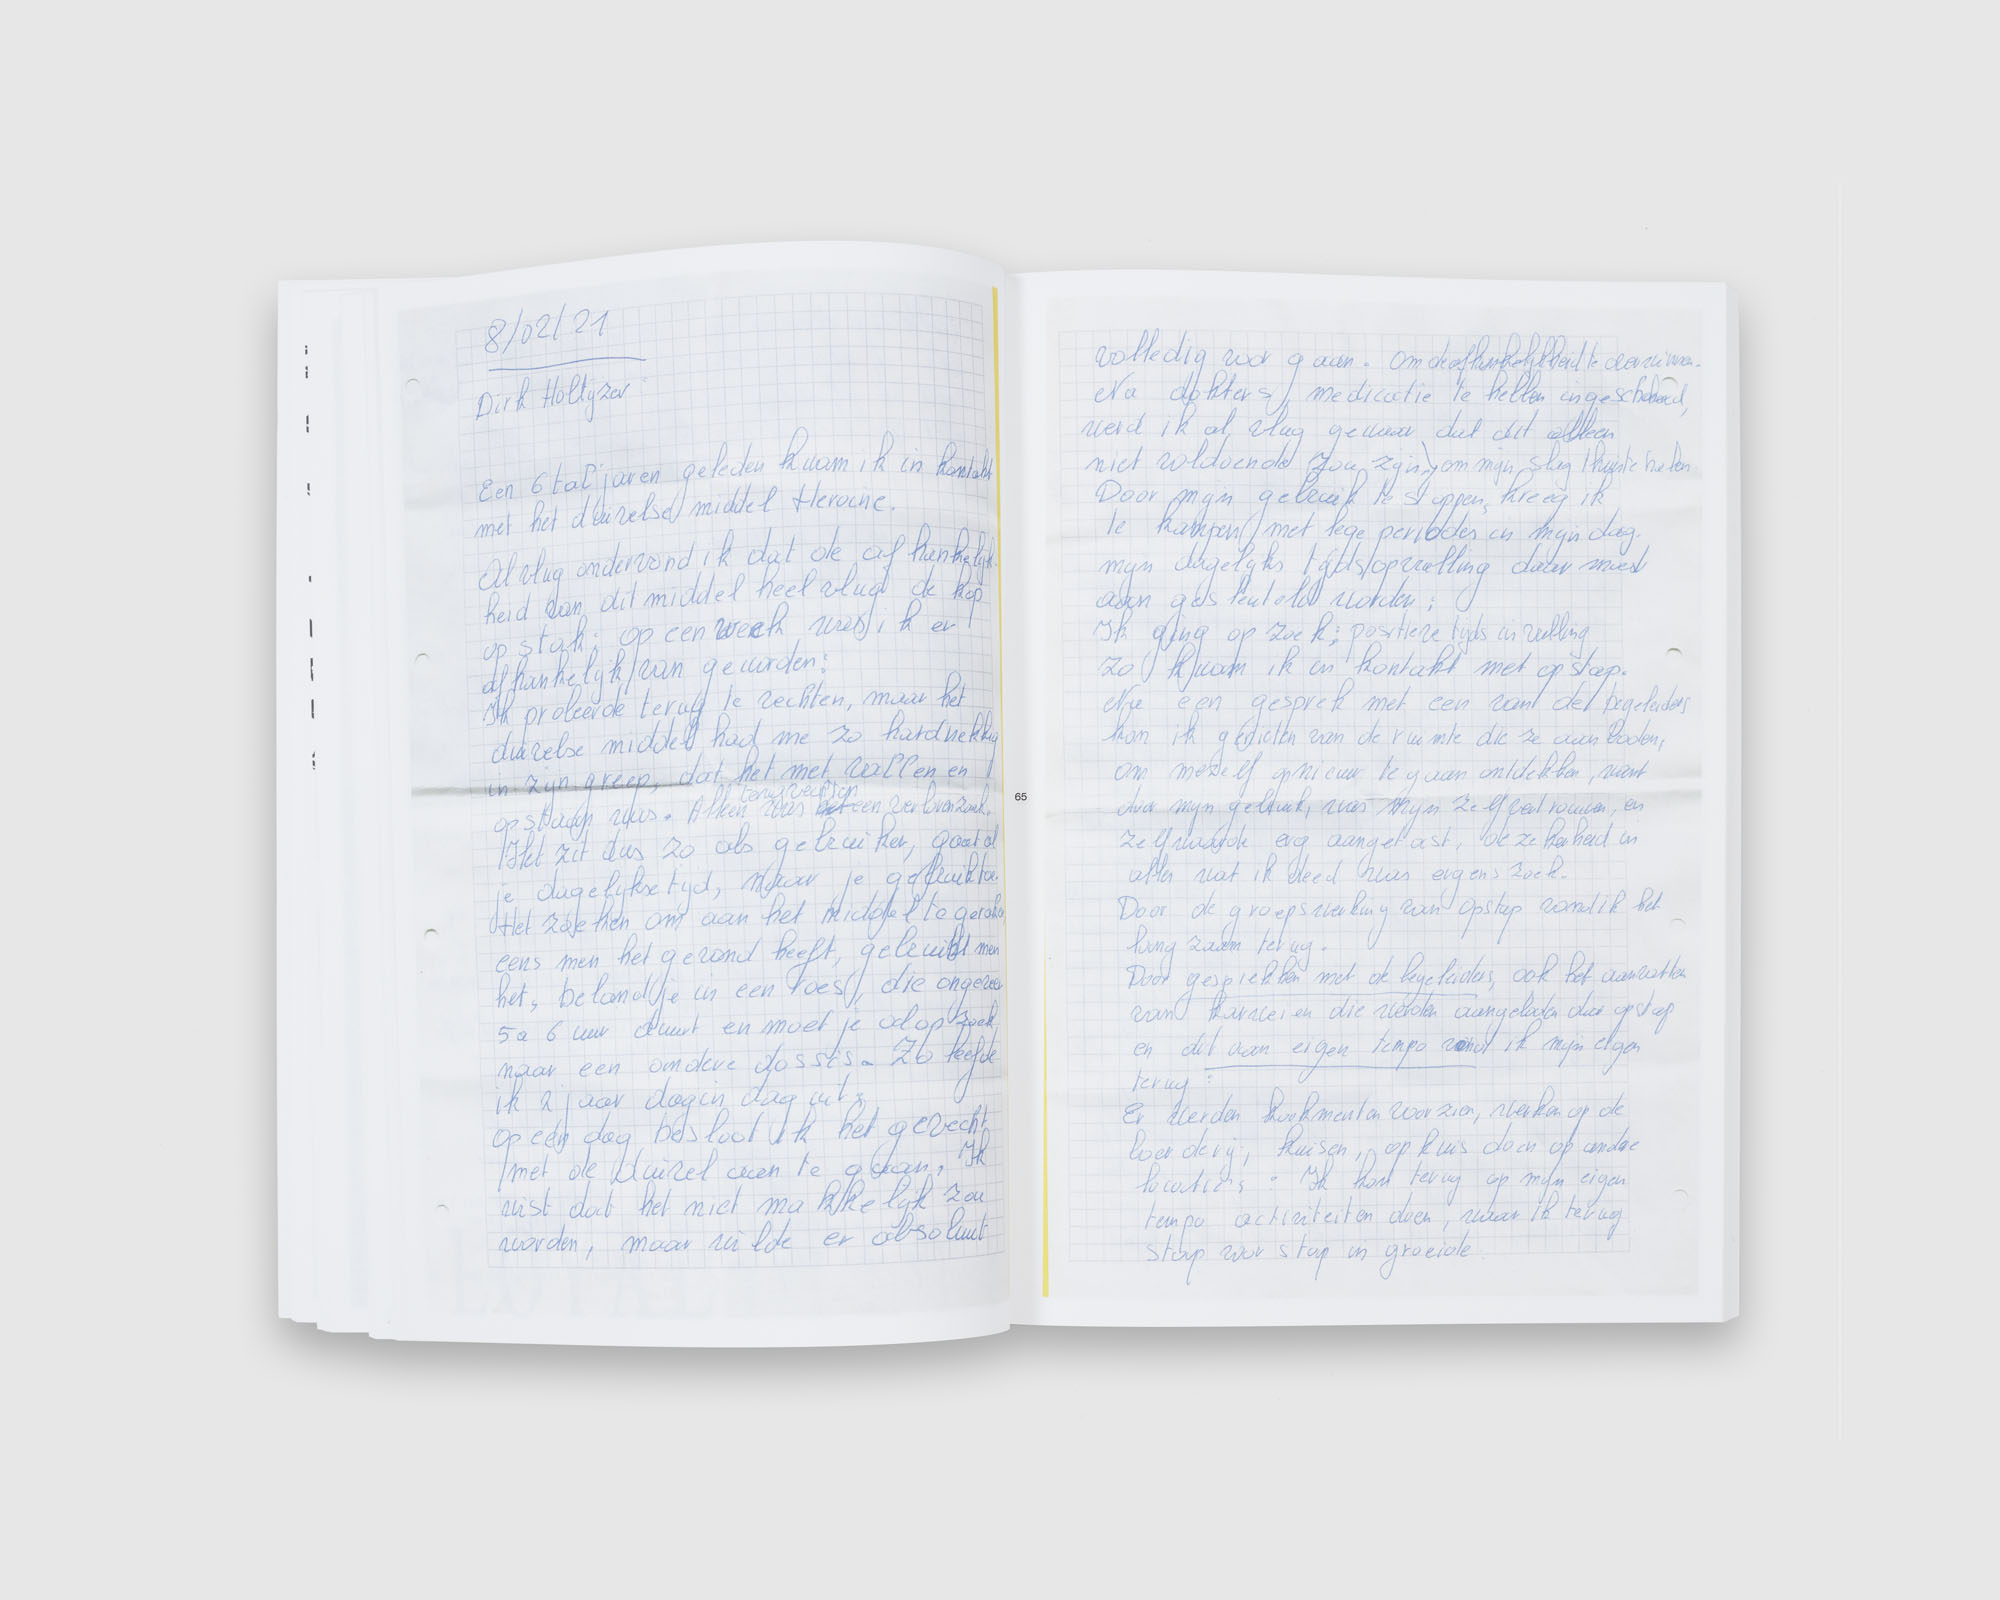 8/02/21
Dirk Holtyzer
Een 6 tal jaren geleden kwam ik in kontakt
met het duivelse middel Heroine.
Al vlug ondervond ik dat de afhankelijk-
heid van dit middel heel vlug de kop
op stak; op een week was ik er
afhankelijk van geworden:
Ik probeerde terug te vechten, maar het
duivelse middel had me zo hardnekkig
in zijn greep, dat het met vallen en
terugvechten
opstaan was. Alleen was een verloren zaak.
Het zit dus zo als gebruiker, gaat al
je dagelijkse tijd, naar je gebruik toe.
Het zoeken om aan het middel te geraken
eens men het gevond heeft, gebruikt men
het, beland je in een roes, die ongeveer
5 a 6 uur duurt en moet je al op zoek
naar een andere dossis. Zo leefde
ik 2 jaar dag in dag uit;
op een dag besloot ik het gevecht
met de duivel aan te gaan. Ik
wist dat het niet makkelijk zou
worden, maar wilde er absoluut
65
volledig voor gaan. Om de afhankelijkheid te overwinnen.
Na dokters, medicatie te hebben ingeschakeld,
werd ik al vlug gewaar dat dit alleen
niet voldoende zou zijn, om mijn slag thuis te halen.
Door mijn gebruik te stoppen, kreeg ik
te kampen met lege periodes in mijn dag.
mijn dagelijks tijdsopvulling daar moest
aan gesleuteld worden;
Ik ging op zoek; positieve tijds invulling
Zo kwam ik in kontakt met opstap.
Na een gesprek met een van de begeleiders
kon ik genieten van de ruimte die ze aanboden,
om mezelf opnieuw te gaan ontdekken, want
door mijn gebruik, was mijn zelfvertrouwen, en
zelfwaarde erg aangetast, onzekerheid in
alles wat ik deed was ergens zoek.
Door de groepswerking van opstap vond ik het
langzaam terug.
Door gesprekken met de begeleiders, ook het aanvatten
van karweien die werden aangeboden door opstap
en dit aan eigen tempo vond ik mijn eigen
terug:
Er werden kookmenten voorzien, werken op de
boerderij, kuisen, opkuis doen op andere
locaties: Ik kon terug op mijn eigen
tempo activiteiten doen, waar ik terug
stap voor stap in groeide.